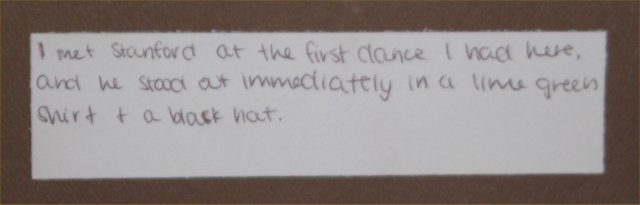 I met Stanford at the first dance I had here,
and he stood out immediattly in a lime green
shirt + a black hat.